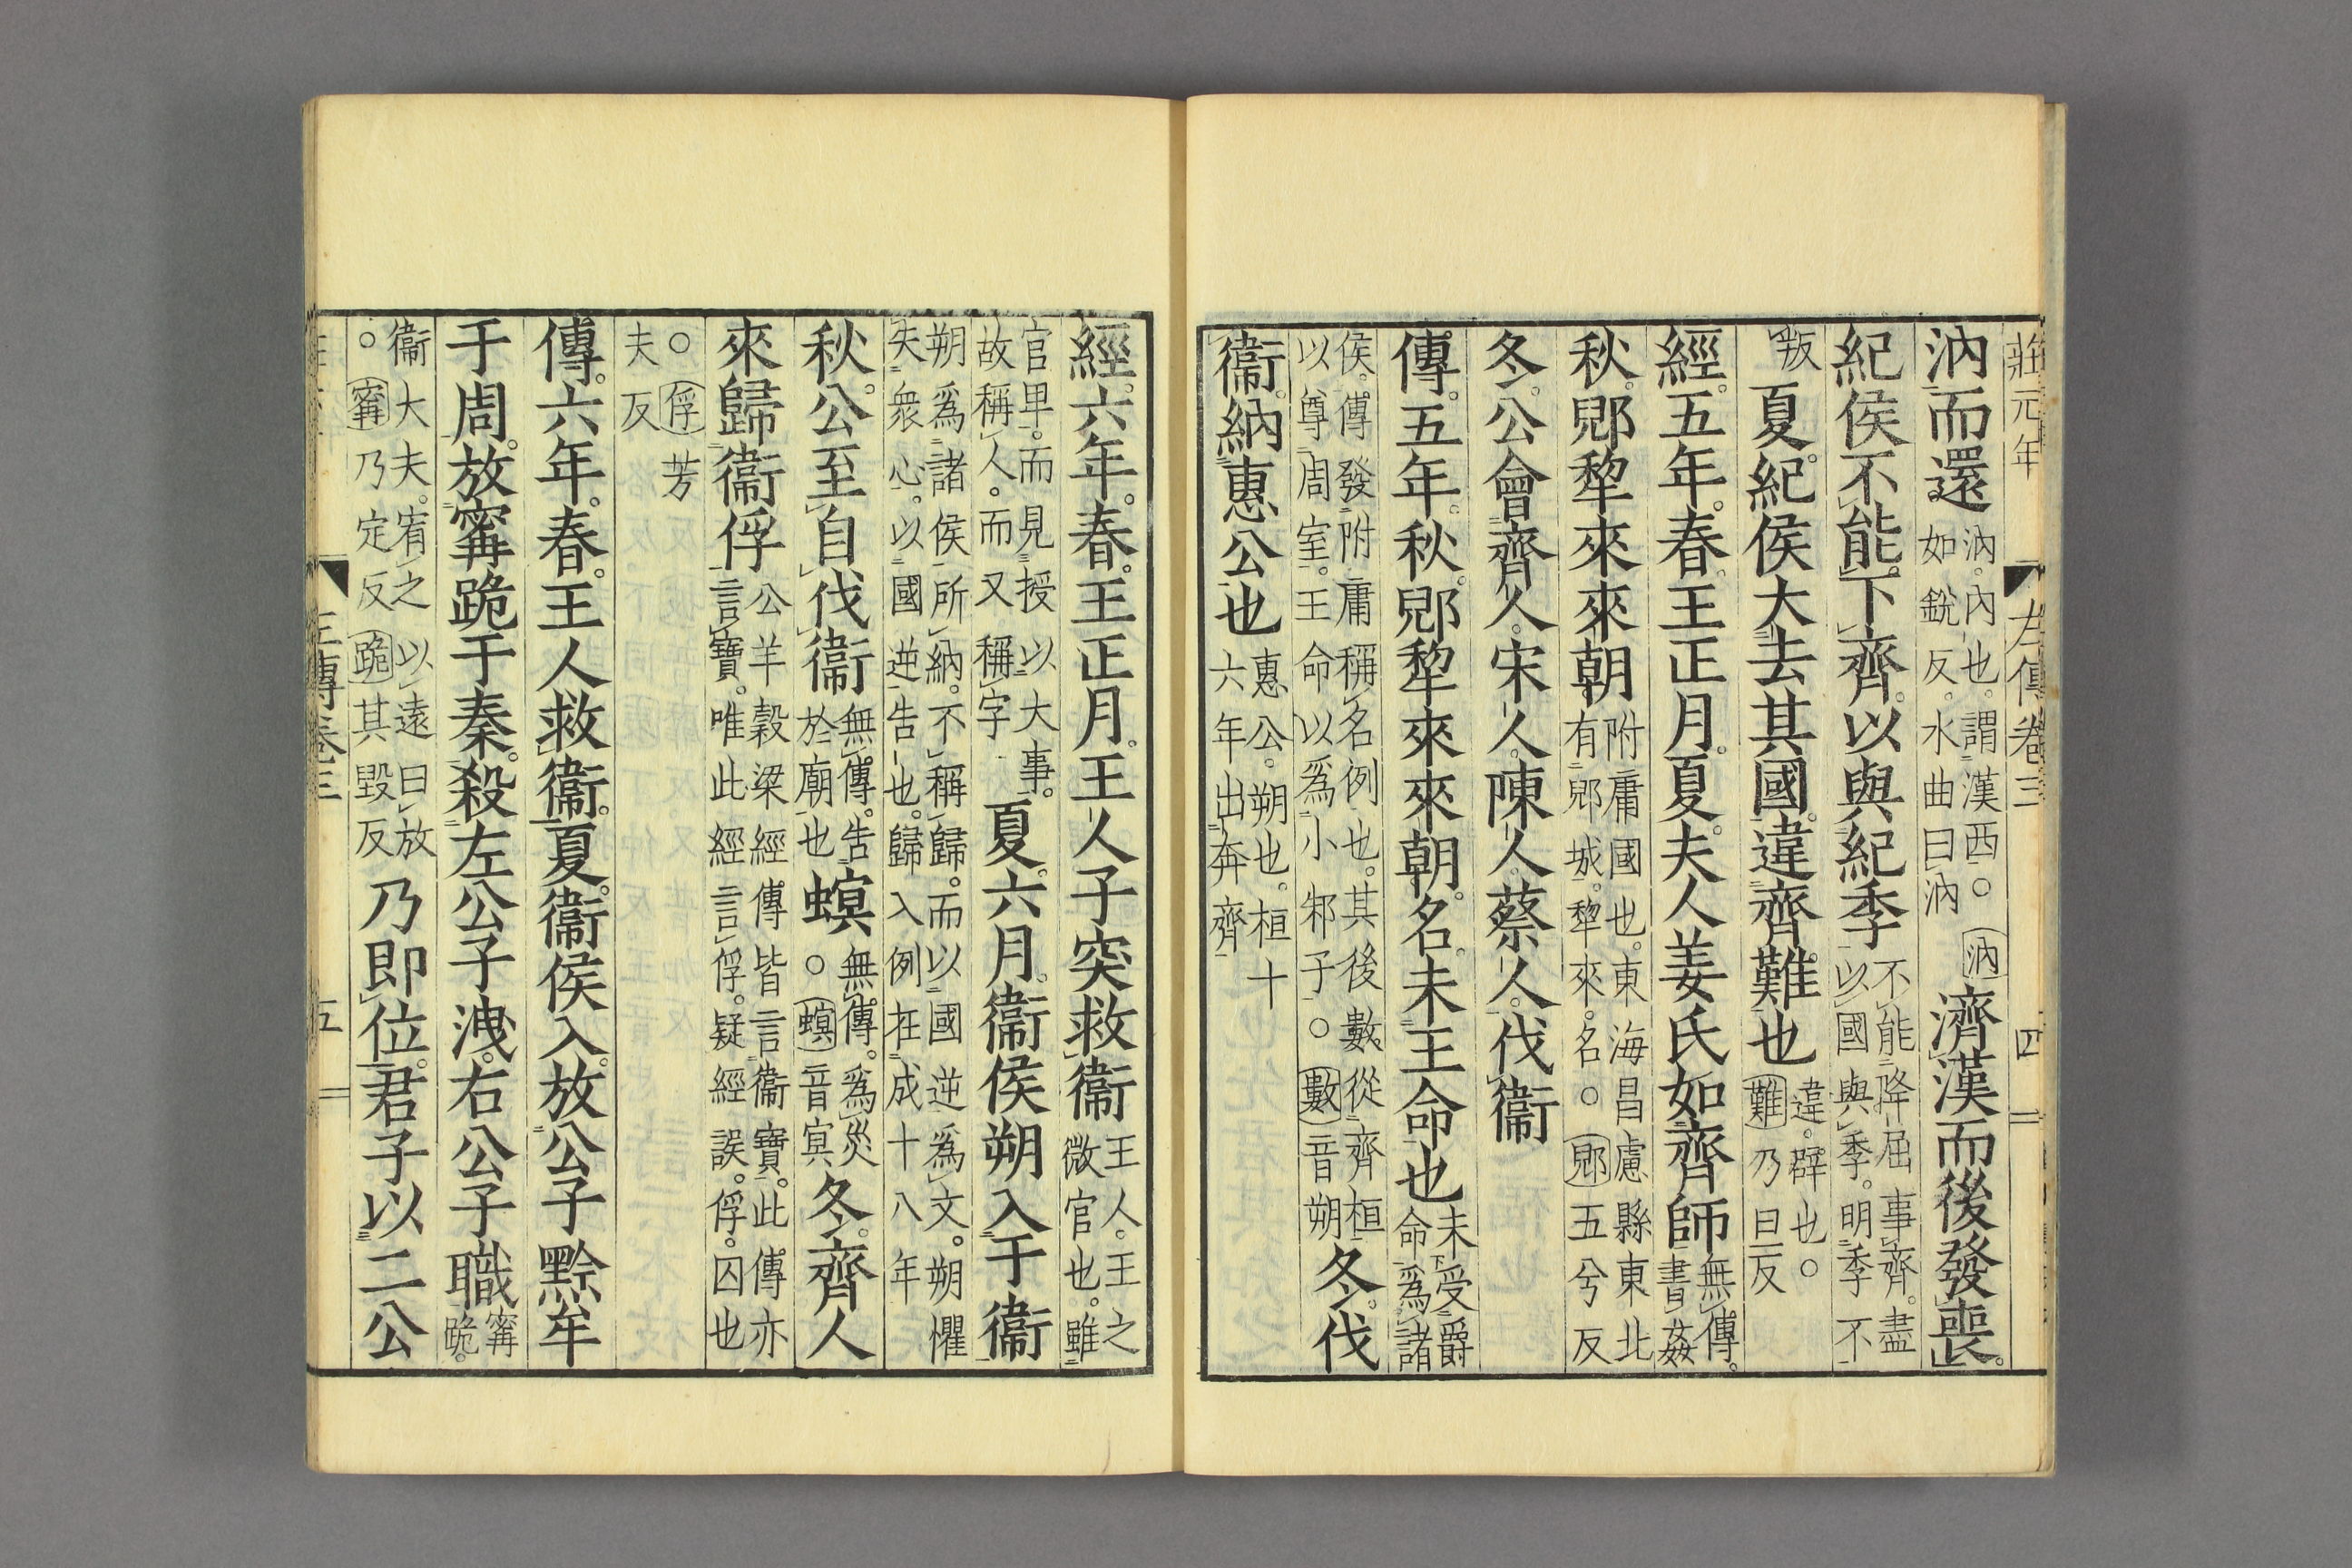 莊元年 左傳卷三 四
汭而還。汭。內也。謂漢西。○汭如銳反。水曲曰汭濟漢而後發喪。
紀侯不能下齊。以與紀季不能降屈事齊。盡以國與季。明季不
叛夏。紀侯大去其國。違齊難也違。辟也。○難乃旦反
經。五年。春。王正月。夏。夫人姜氏如齊師無傳。書姦
秋。郳犂來來朝附庸國也。東海昌慮縣東北有郳城。犂來。名。○郳五兮反
冬。公會齊人。宋人。陳人。蔡人。伐衞
傳。五年。秋。郳犂來來朝。名。未王命也未受爵命爲諸
侯。傳發附庸稱名例也。其後數從齊桓以尊周室。王命以爲小邾子。○數音朔冬。伐
衞。納惠公也惠公。朔也。桓十六年出奔齊
經。六年。春。王正月。王人子突救衞王人。王之微官也。雖
官卑。而見授以大事。故稱人。而又稱字夏。六月。衞侯朔入于衞
朔爲諸侯所納。不稱歸。而以國逆爲文。朔懼失衆心。以國逆告也。歸入例在成十八年
秋。公至自伐衞無傳。告於廟也螟無傳。爲災○螟音冥冬。齊人
來歸衞俘公羊穀梁經傳皆言衞寶。此傳亦言寶。唯此經言俘。疑經誤。俘。囚也
○俘芳夫反
傳。六年。春。王人救衞。夏。衞侯入。放公子黔牟
于周。放甯跪于秦。殺左公子洩。右公子職甯跪。
衞大夫。宥之以遠曰放○甯乃定反跪其毀反乃即位。君子以二公
左傳卷三 五